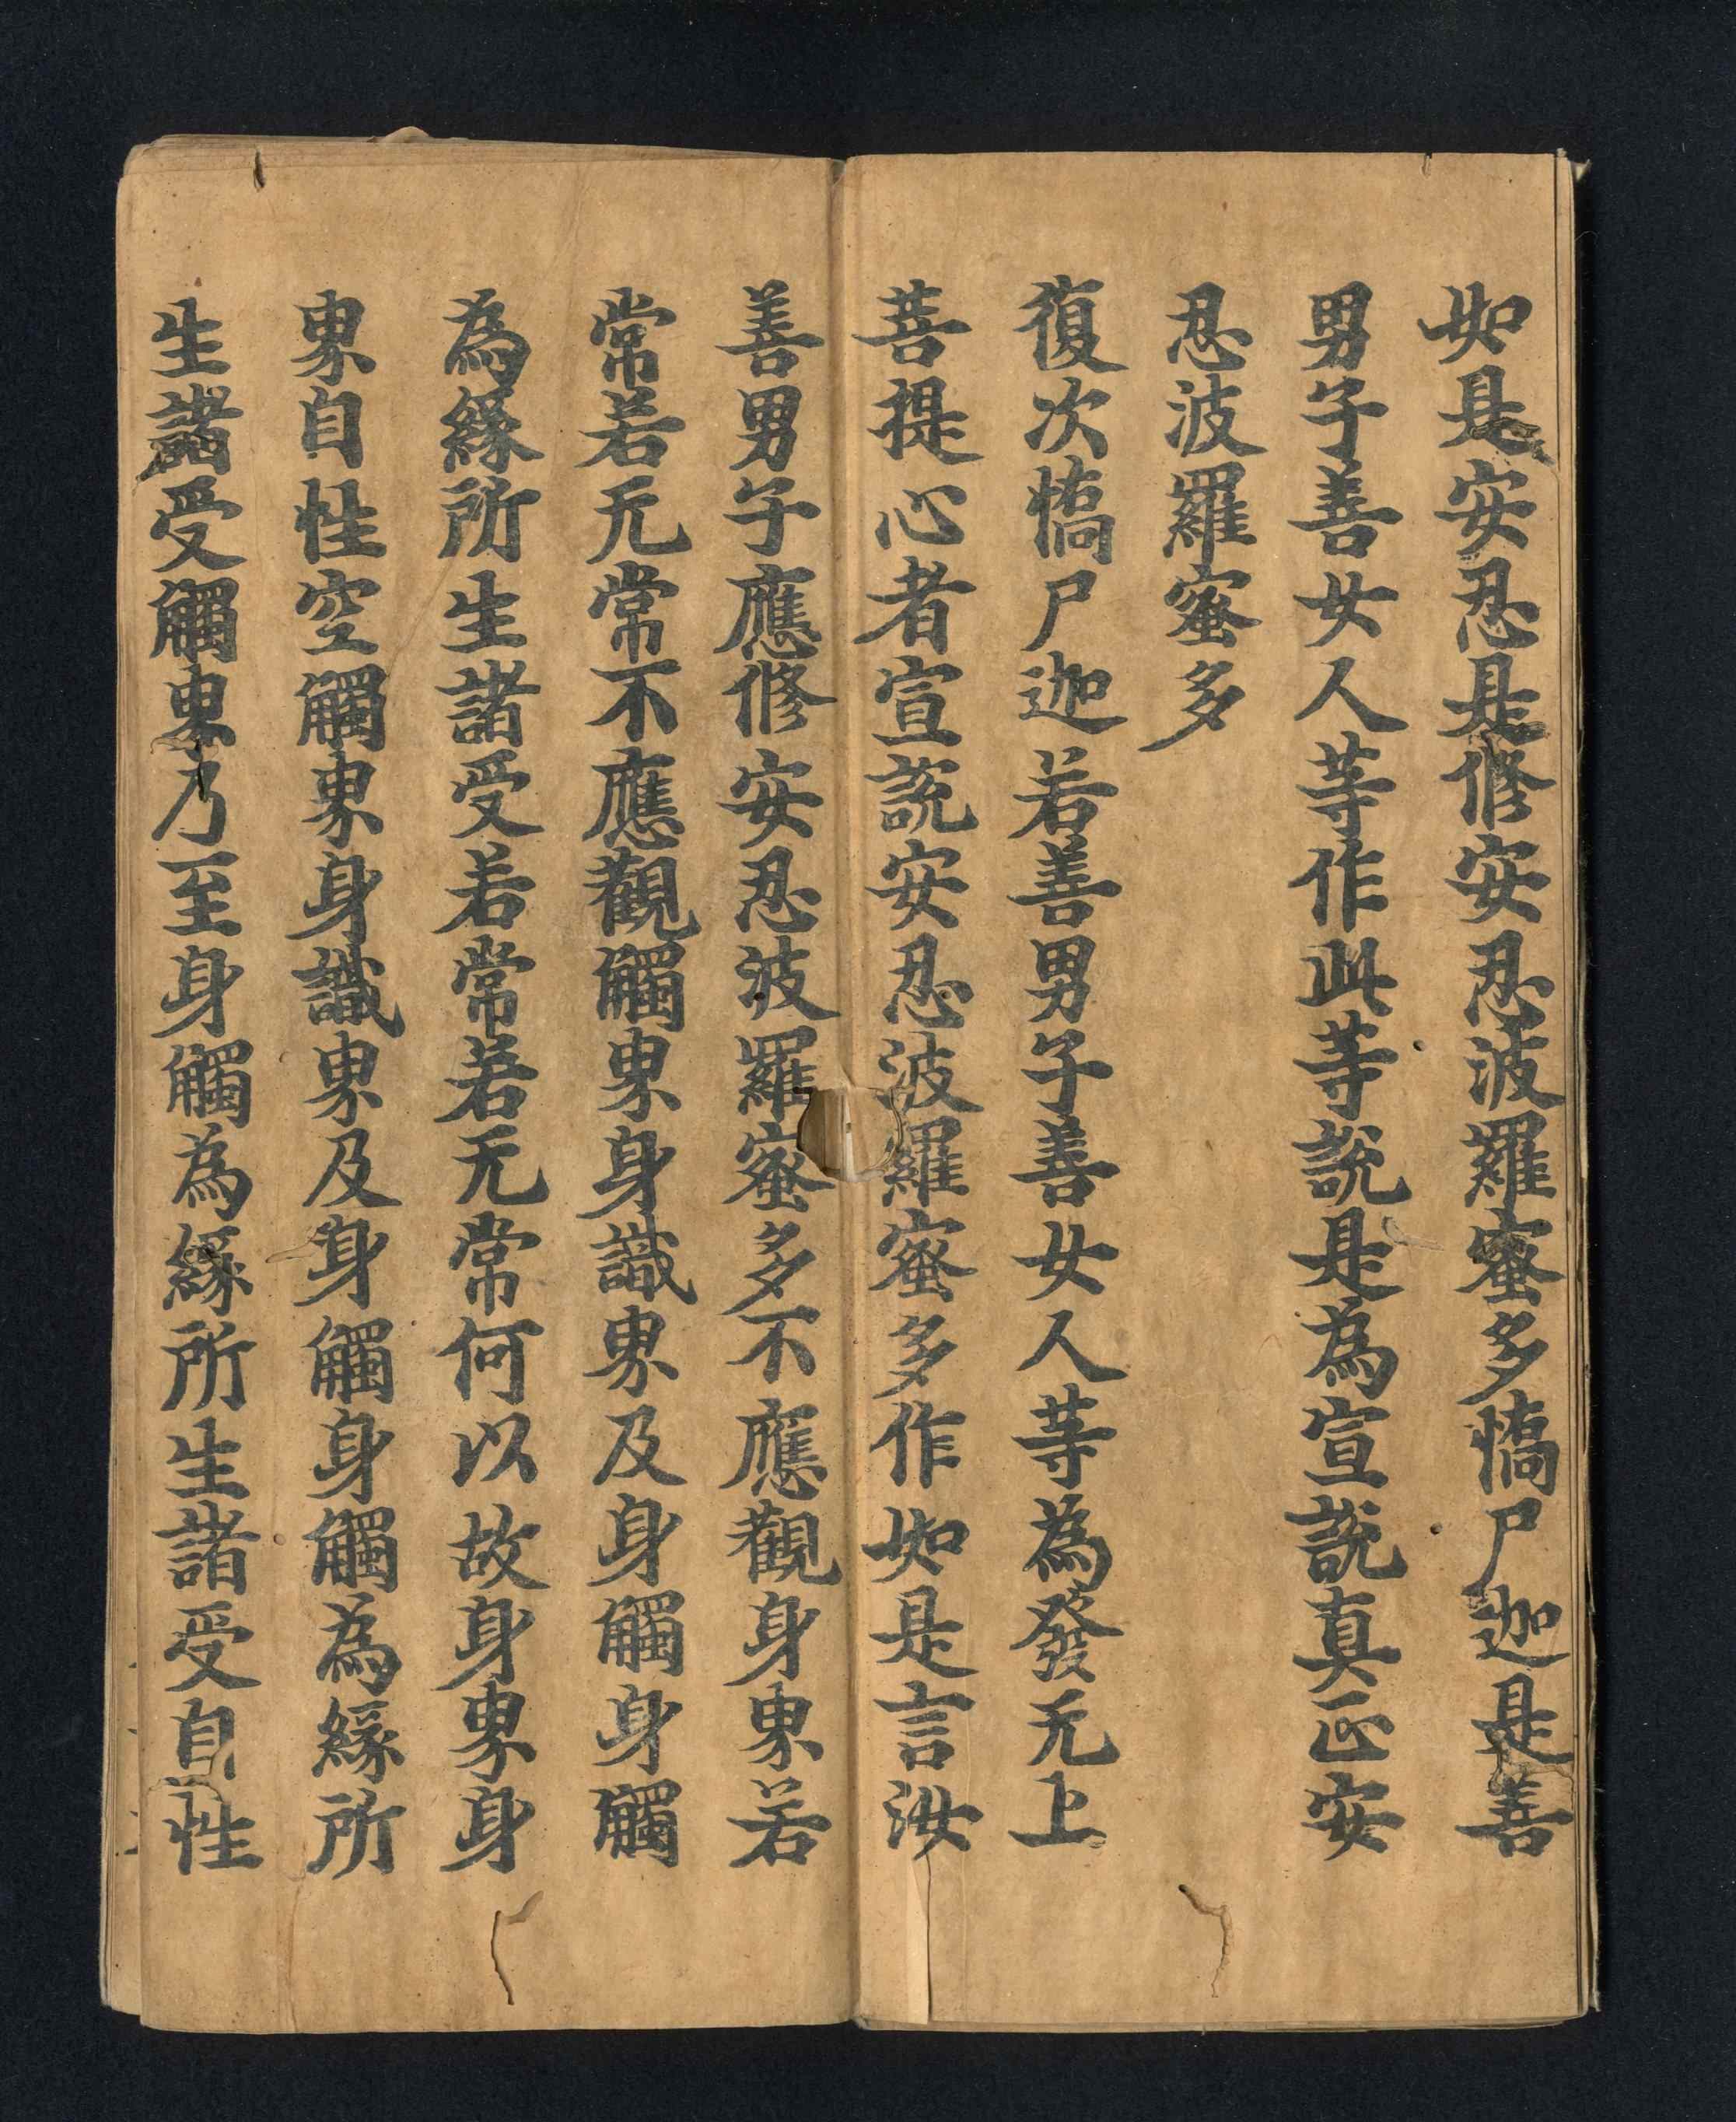 如是安忍是修安忍波羅蜜多憍尸迦是善
男子善女人等作此等說是為宣說真正安
忍波羅蜜多
復次憍尸迦若善男子善女人等為發无上
菩提心者宣說安忍波羅蜜多作如是言汝
善男子應修安忍波羅蜜多不應觀身界若
常若无常不應觀觸界身識界及身觸身觸
為緣所生諸受若常若无常何以故身界身
界自性空觸界身識界及身觸身觸為緣所
生諸受觸界乃至身觸為緣所生諸受自性